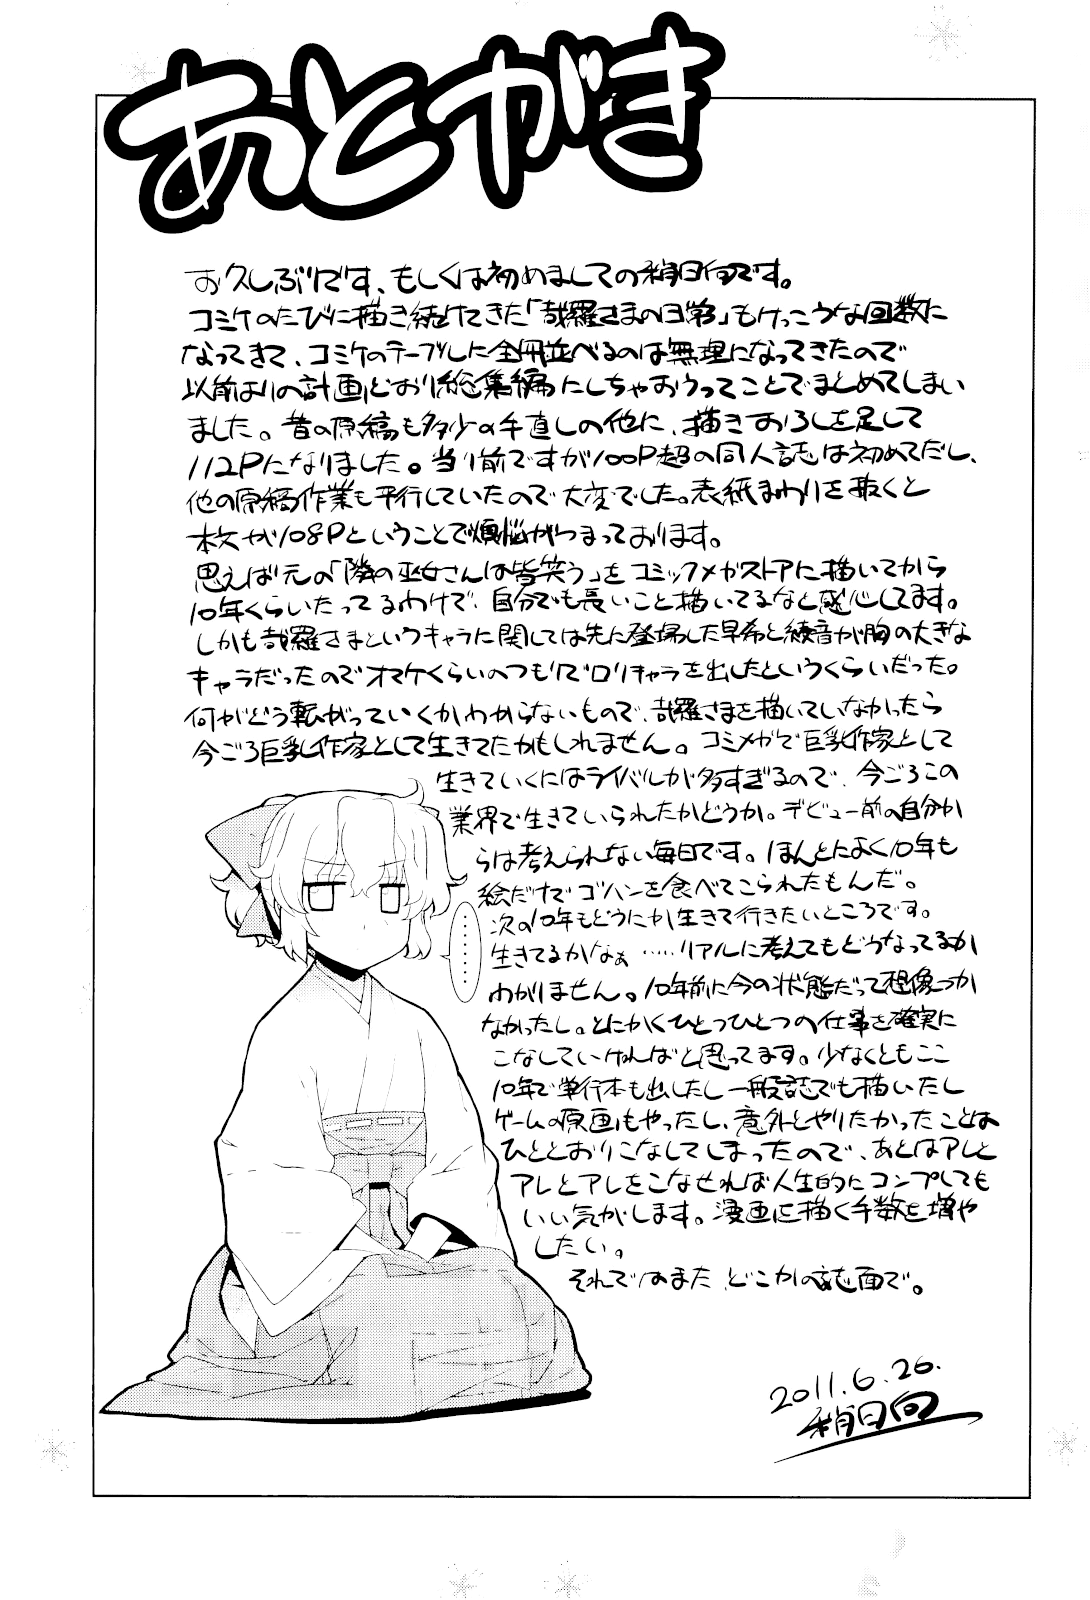 あとがき
お久しぶりです、もしくは初めましての稍日向です。
コミケのたびに描き続けてきた「哉羅さまの日常」もけっこうな回数に
なってきて、コミケのテーブルに全冊並べるのは無理になってきたので
以前よりの計画どおり総集編にしちゃおうってことでまとめてしまい
ました。昔の原稿も多少の手直しの他に、描きおろしを足して
112Pになりました。当り前ですが100P超の同人誌は初めてだし、
他の原稿作業も平行していたので大変でした。表紙まわりを抜くと
本文が108Pということで煩悩がつまっております。
思えば元の「隣の巫女さんは皆笑う」をコミックメガストアに描いてから
10年くらいたってるわけで、自分でも長いこと描いてるなと感心してます。
しかも哉羅さまというキャラに関しては先に登場した早希と綾音が胸の大きな
キャラだったのでオマケくらいのつもりでロリキャラを出したというくらいだった。
何がどう転がっていくかわからないもので、哉羅さまを描いていなかったら
今ごろ巨乳作家として生きてたかもしれません。コミメガで巨乳作家として
生きていくにはライバルが多すぎるので、今ごろこの
業界で生きていられたかどうか。デビュー前の自分か
らは考えられない毎日です。ほんとによく10年も
絵だけでゴハンを食べてこられたもんだ。
次の10年もどうにか生きて行きたいところです。
生きてるかなぁ……リアルに考えてもどうなってるか
わかりません。10年前に今の状態だって想像つか
なかったし。とにかくひとつひとつの仕事を確実に
こなしていければと思ってます。少なくともここ
10年で単行本も出したし一般誌でも描いたし
ゲームの原画もやったし、意外とやりたかったことは
ひととおりこなしてしまったので、あとはアレと
アレとアレをこなせれば人生的にコンプしても
いい気がします。漫画に描く手数を増や
したい。
それではまた、どこかの誌面で。
………
2011.6.26.
稍日向